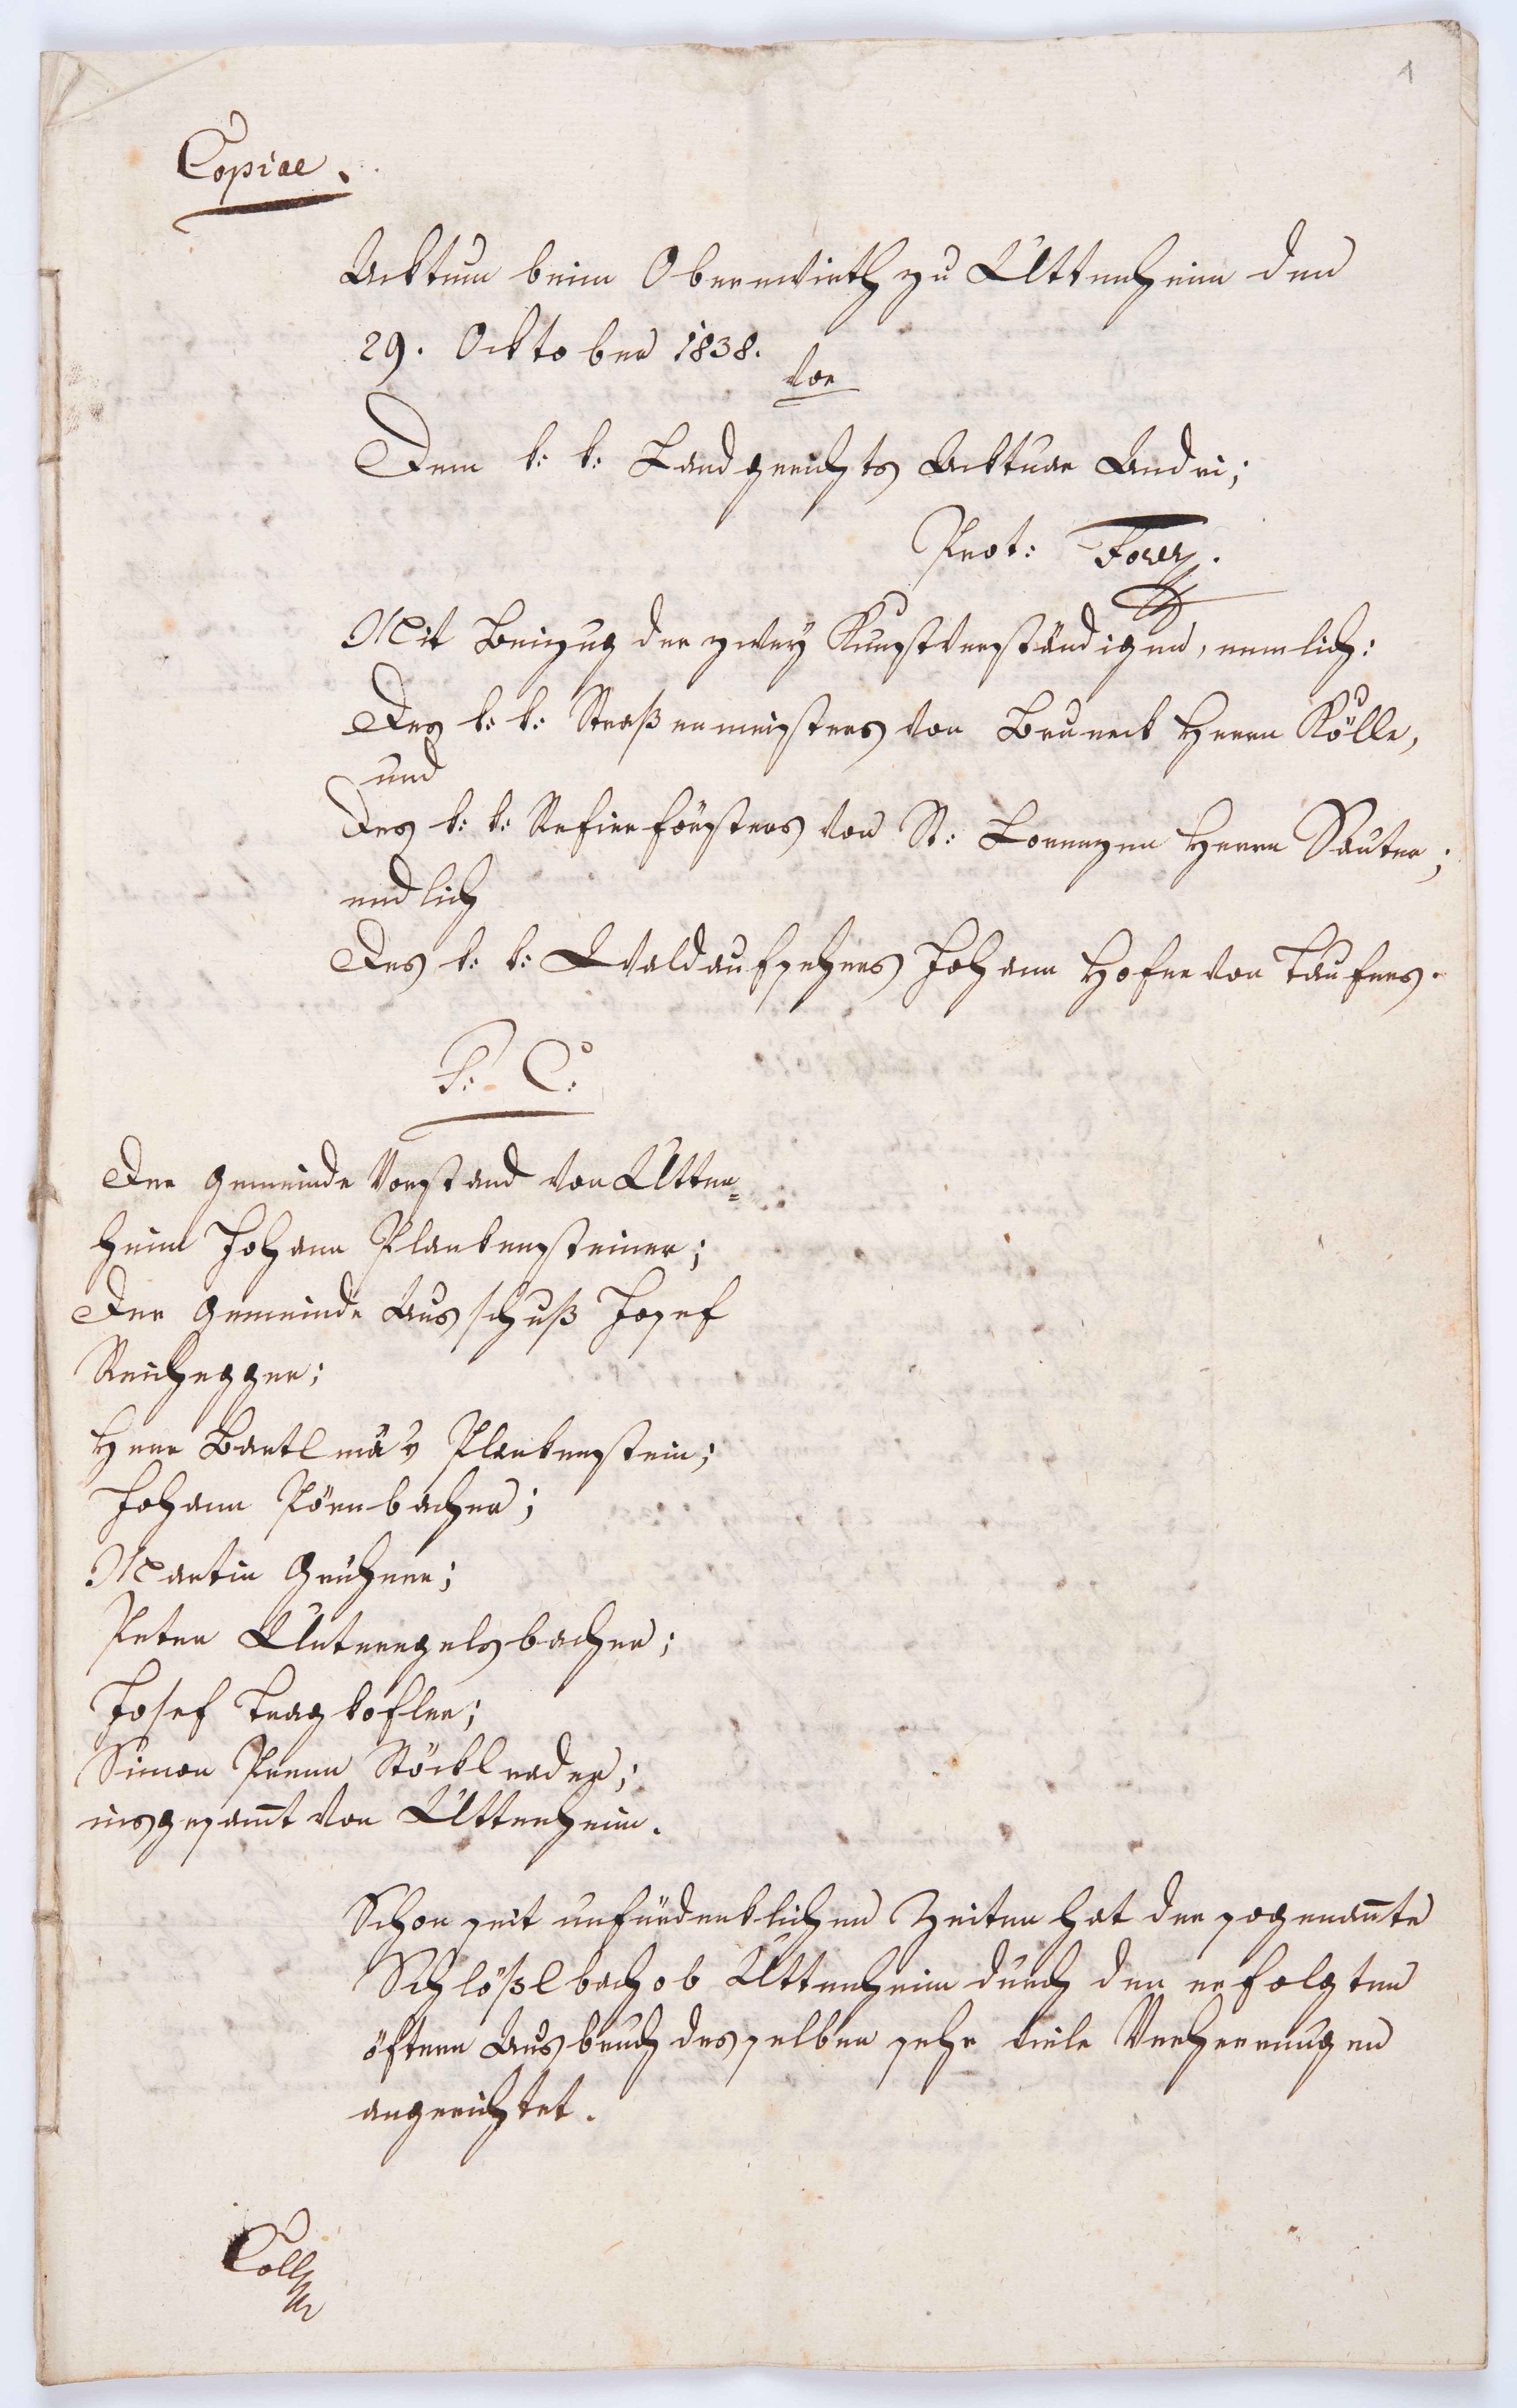 1
Copiae.
Acktum beim Oberwirth zu Uttenheim den
29. Ocktober 1838.
Vor
Dem k: k: Landgerichts Acktuar Andri;
Prot: Forer.
Mit Beizug der zwey Kunstverständigen, nemlich:
Des k: k: Straßenmeisters von Bruneck Herrn Kölle,
und
Des k: k: Refierförsters von St: Lorenzen Herrn Sauter;
endlich
Des k: k: Waldaufsehers Johann Hofer von Taufers.
P: C:
Der Gemeinde Vorstand von Utten=
heim Johann Plankensteiner;
Der Gemeinde Ausschuß Josef
Reichegger;
Herr Bartlmä v Plankenstein;
Johann Pörnbacher;
Martin Gruber;
Peter Unterngelsbacher;
Josef Tragkofler;
Simon Prenn Stöcklrader;
insgesam̅t von Uttenheim.
Schon seit unfürdenklichen Zeiten hat der sogenan̅te
Schlößlbach ob Uttenheim durch den erfolgten
öftern Ausbruch desselben sehr viele Verheerungen
angerichtet.
Coll